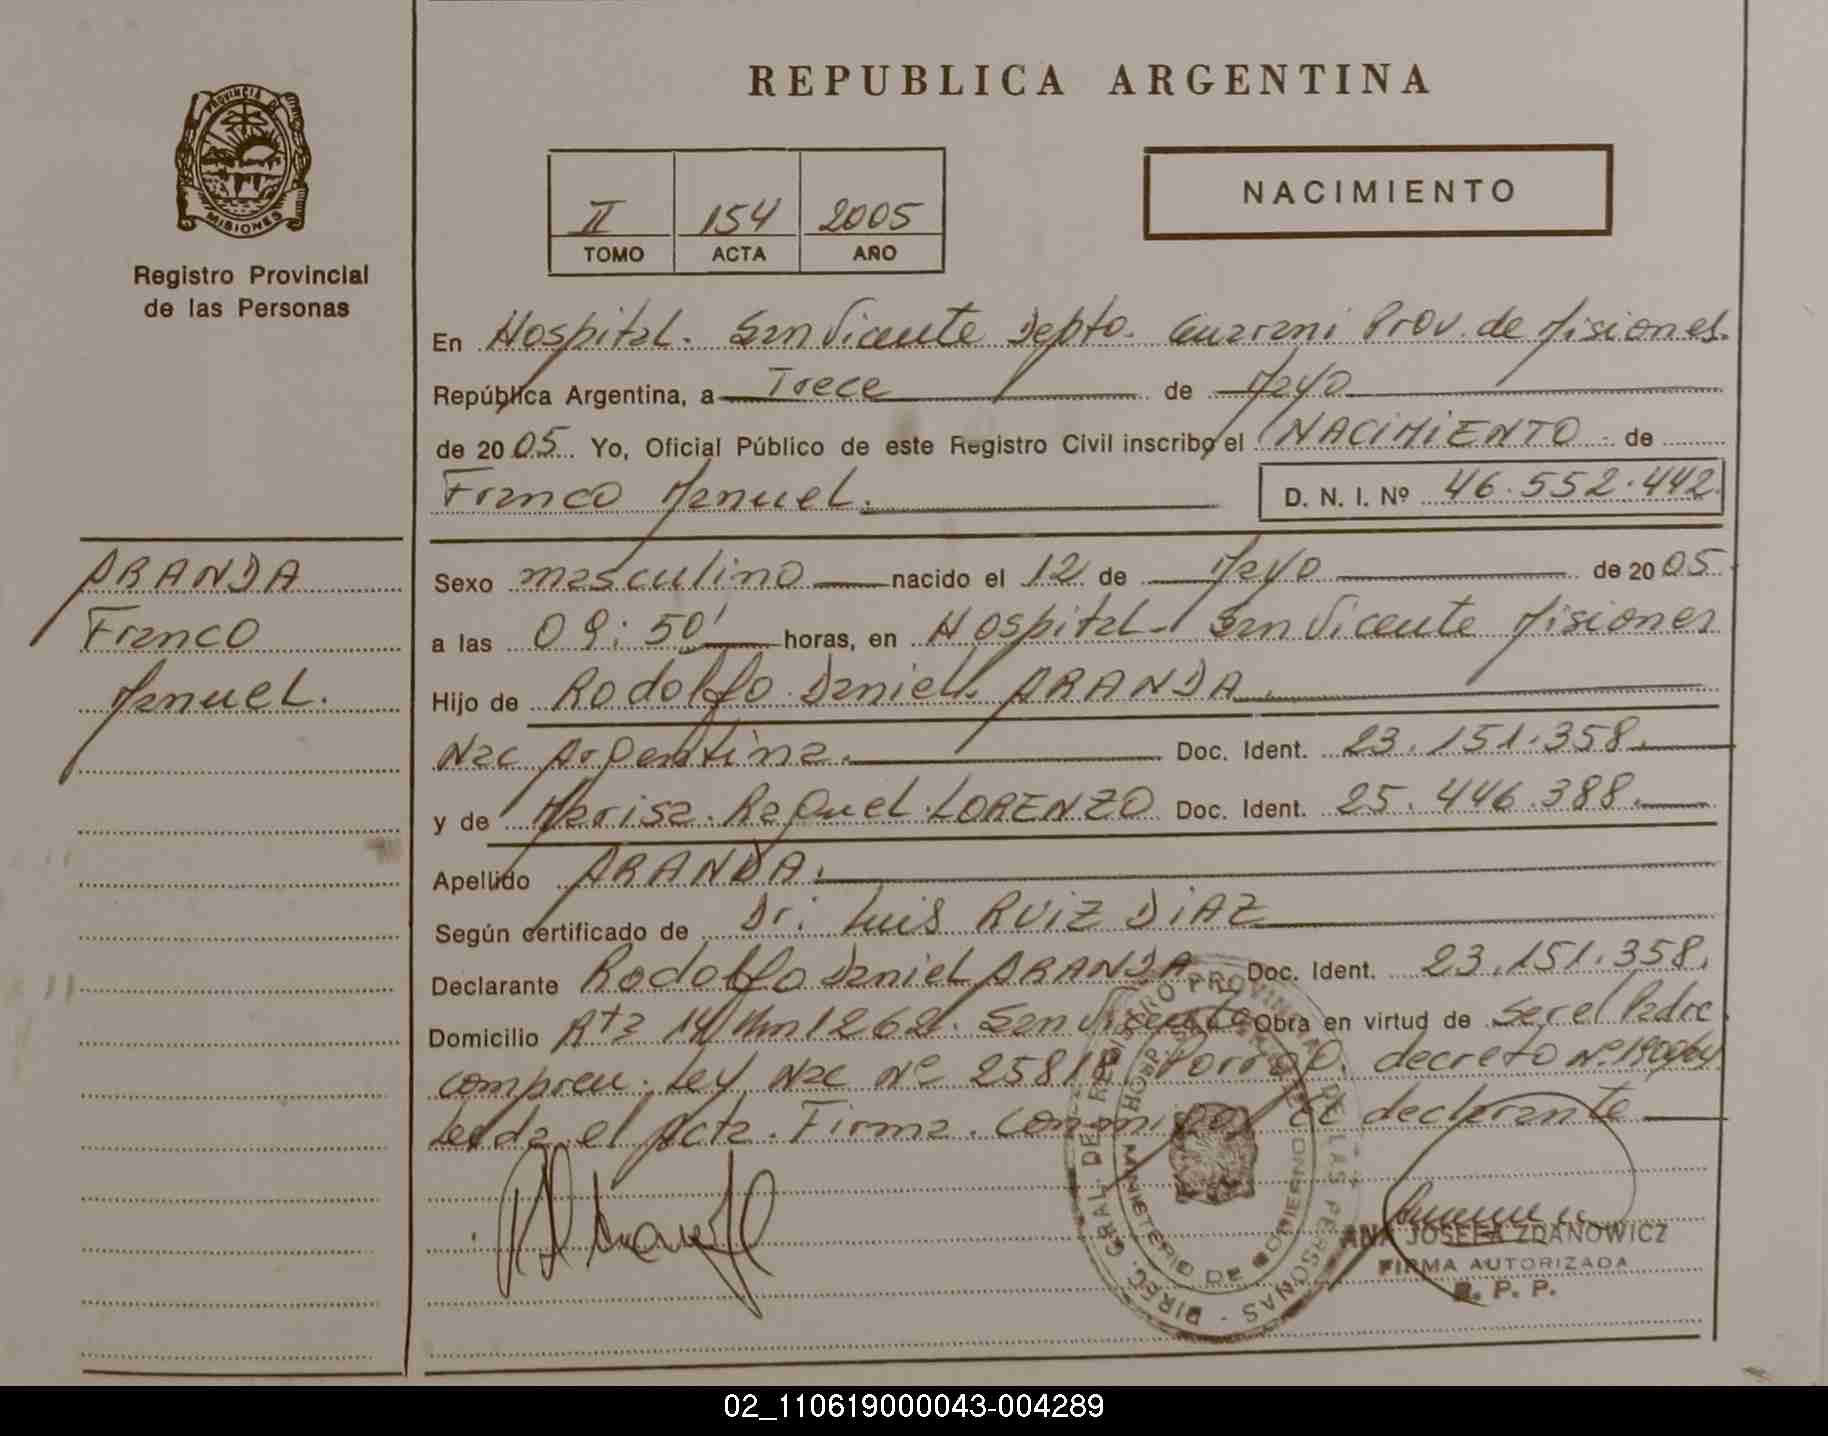 REPUBLICA ARGENTINA
PROVINCIA DE
MISIONES
Registro Provincial
de las Personas
II 154 2005
TOMO ACTA AÑO
NACIMIENTO
En Hospital. San Vicente Depto. Guarani Prov. de Misiones.
República Argentina, a Trece de Mayo
de 2005. Yo, Oficial Público de este Registro Civil inscribo el NACIMIENTO de
Franco Manuel. D. N. I. Nº 46.552.442.
ARANDA
Franco
Manuel.
Sexo masculino nacido el 12 de Mayo de 2005.
a las 09:50' horas, en Hospital - San Vicente Misiones
Hijo de Rodolfo Daniel. ARANDA.
Nac Argentina. Doc. Ident. 23.151.358.
y de Marisa. Raquel. LORENZO Doc. Ident. 25.446.388.
Apellido ARANDA.
Según certificado de Dr: Luis RUIZ DIAZ
Declarante Rodolfo Daniel ARANDA Doc. Ident. 23.151.358.
Domicilio Rta 14 Km 1262. San Vicente Obra en virtud de ser el Padre
Ley Nac Nº 25818 decreto Nº
Leida el Acta. Firma. Conmigo el declarante
DIREC. GRAL. DE REGISTRO PROVINCIAL DE LAS PERSONAS -
MINISTERIO DE GOBIERNO
ANA JOSEFA ZDANOWICZ
FIRMA AUTORIZADA
R. P. P.
02_110619000043-004289